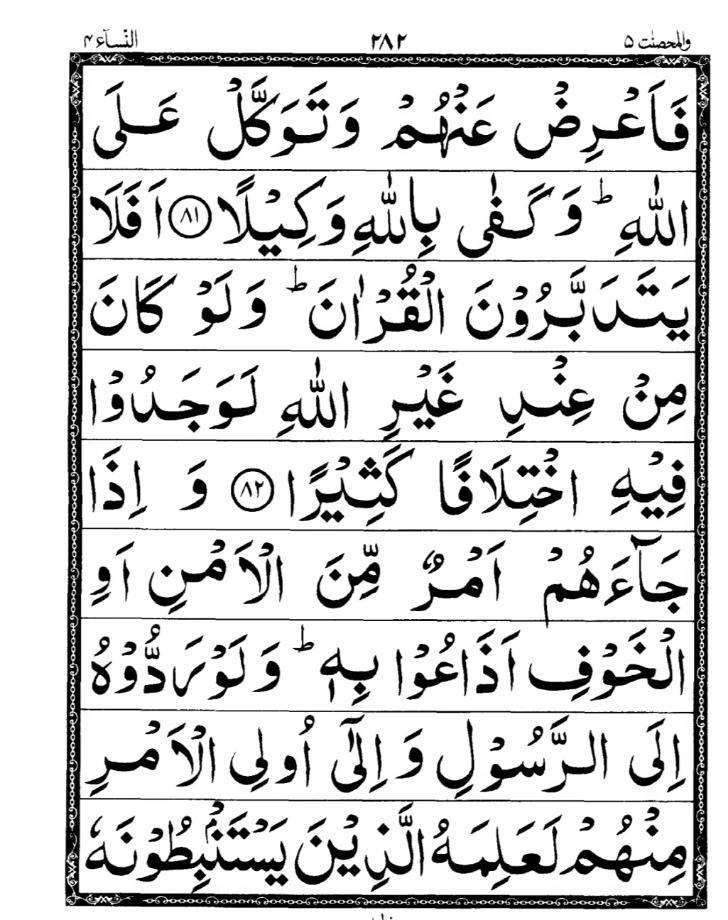 والمحصنٰت ۵ ۲۸۲ النسآء ۴
فَاَعْرِضْ عَنْهُمْ وَتَوَكَّلْ عَلَى
اللّٰهِ ؕ وَكَفٰى بِاللّٰهِ وَكِيْلًا ﴿۸۱﴾ اَفَلَا
يَتَدَبَّرُوْنَ الْقُرْاٰنَ ؕ وَلَوْ كَانَ
مِنْ عِنْدِ غَيْرِ اللّٰهِ لَوَجَدُوْا
فِيْهِ اخْتِلَافًا كَثِيْرًا ﴿۸۲﴾ وَ اِذَا
جَآءَهُمْ اَمْرٌ مِّنَ الْاَمْنِ اَوِ
الْخَوْفِ اَذَاعُوْا بِهٖ ؕ وَلَوْ رَدُّوْهُ
اِلَى الرَّسُوْلِ وَاِلٰٓى اُولِى الْاَمْرِ
مِنْهُمْ لَعَلِمَهُ الَّذِيْنَ يَسْتَنْۢبِطُوْنَهٗ